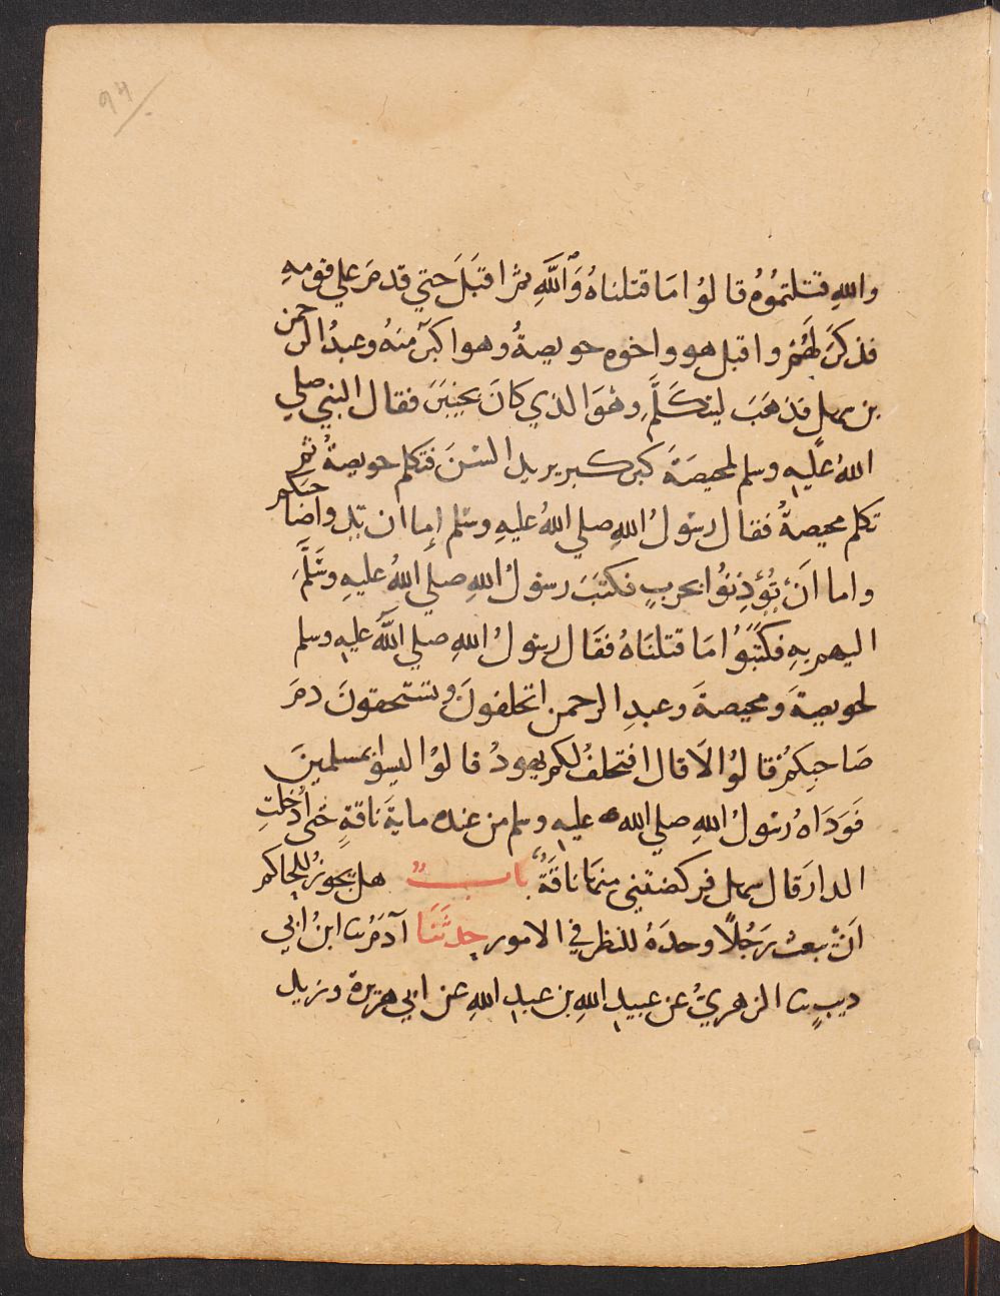 ٩٤
والله قتلتموُهُ قالوُا مَا قتلناهُ وَاللَّهِ ثمّ اقبَلَ حتي قدمَ علي قومِهِ
فذكرَ لهُمْ واقبل هو واخوه حويصةُ وهو اكبرُ منهُ وعبدُ الرحمن
بن سهلٍ فذهَبَ ليتكلَّمَ وهُوَ الذي كانَ بخيبَرَ فقال النبي صلي
اللهُ عليهِ وسلم لمحيصَةَ كبر كبر يريد السّنَ فتكلم حويصةُ ثم
تكلم محيصةُ فقال رسُولُ اللهِ صلي اللهُ عليهِ وسَلم إما ان تدوا صاحبكم
واما اَنْ تؤذِنوُا بحربٍ فكتبَ رسولُ اللهِ صلي اللهُ عليهِ وسَلَّمَ
اليهم بهِ فكتبُوُا مَا قتلنَاهُ فقَال رسولُ اللهِ صلي اللهُ عليهِ وسلم
لحويصةَ ومحيصةَ وعبدِ الرحمن اتحلفونَ وتستحقونَ دمَ
صَاحِبِكمُ قالوُا لَا قال افتحلفُ لكم يهودُ قالوُا ليسوا بمسلمينَ
فَوَدَاهُ رسُولُ اللهِ صلي الله عليهِ وسلم من عنده مايةَ ناقةٍ حتى اُدخلتِ
الدارَ قال سهل فركضتني منهَا ناقَةٌ باب هل يجوزُ للحاكم
اَنْ يبعثَ رَجُلاً وحدَهُ للنظر في الامور حدثَنَا آدَمُ ثنا ابنُ ابي
ذيبٍ ثنا الزهريُ عن عبيدِ اللهِ بن عبدِ اللهِ عن ابي هريرة وزيد